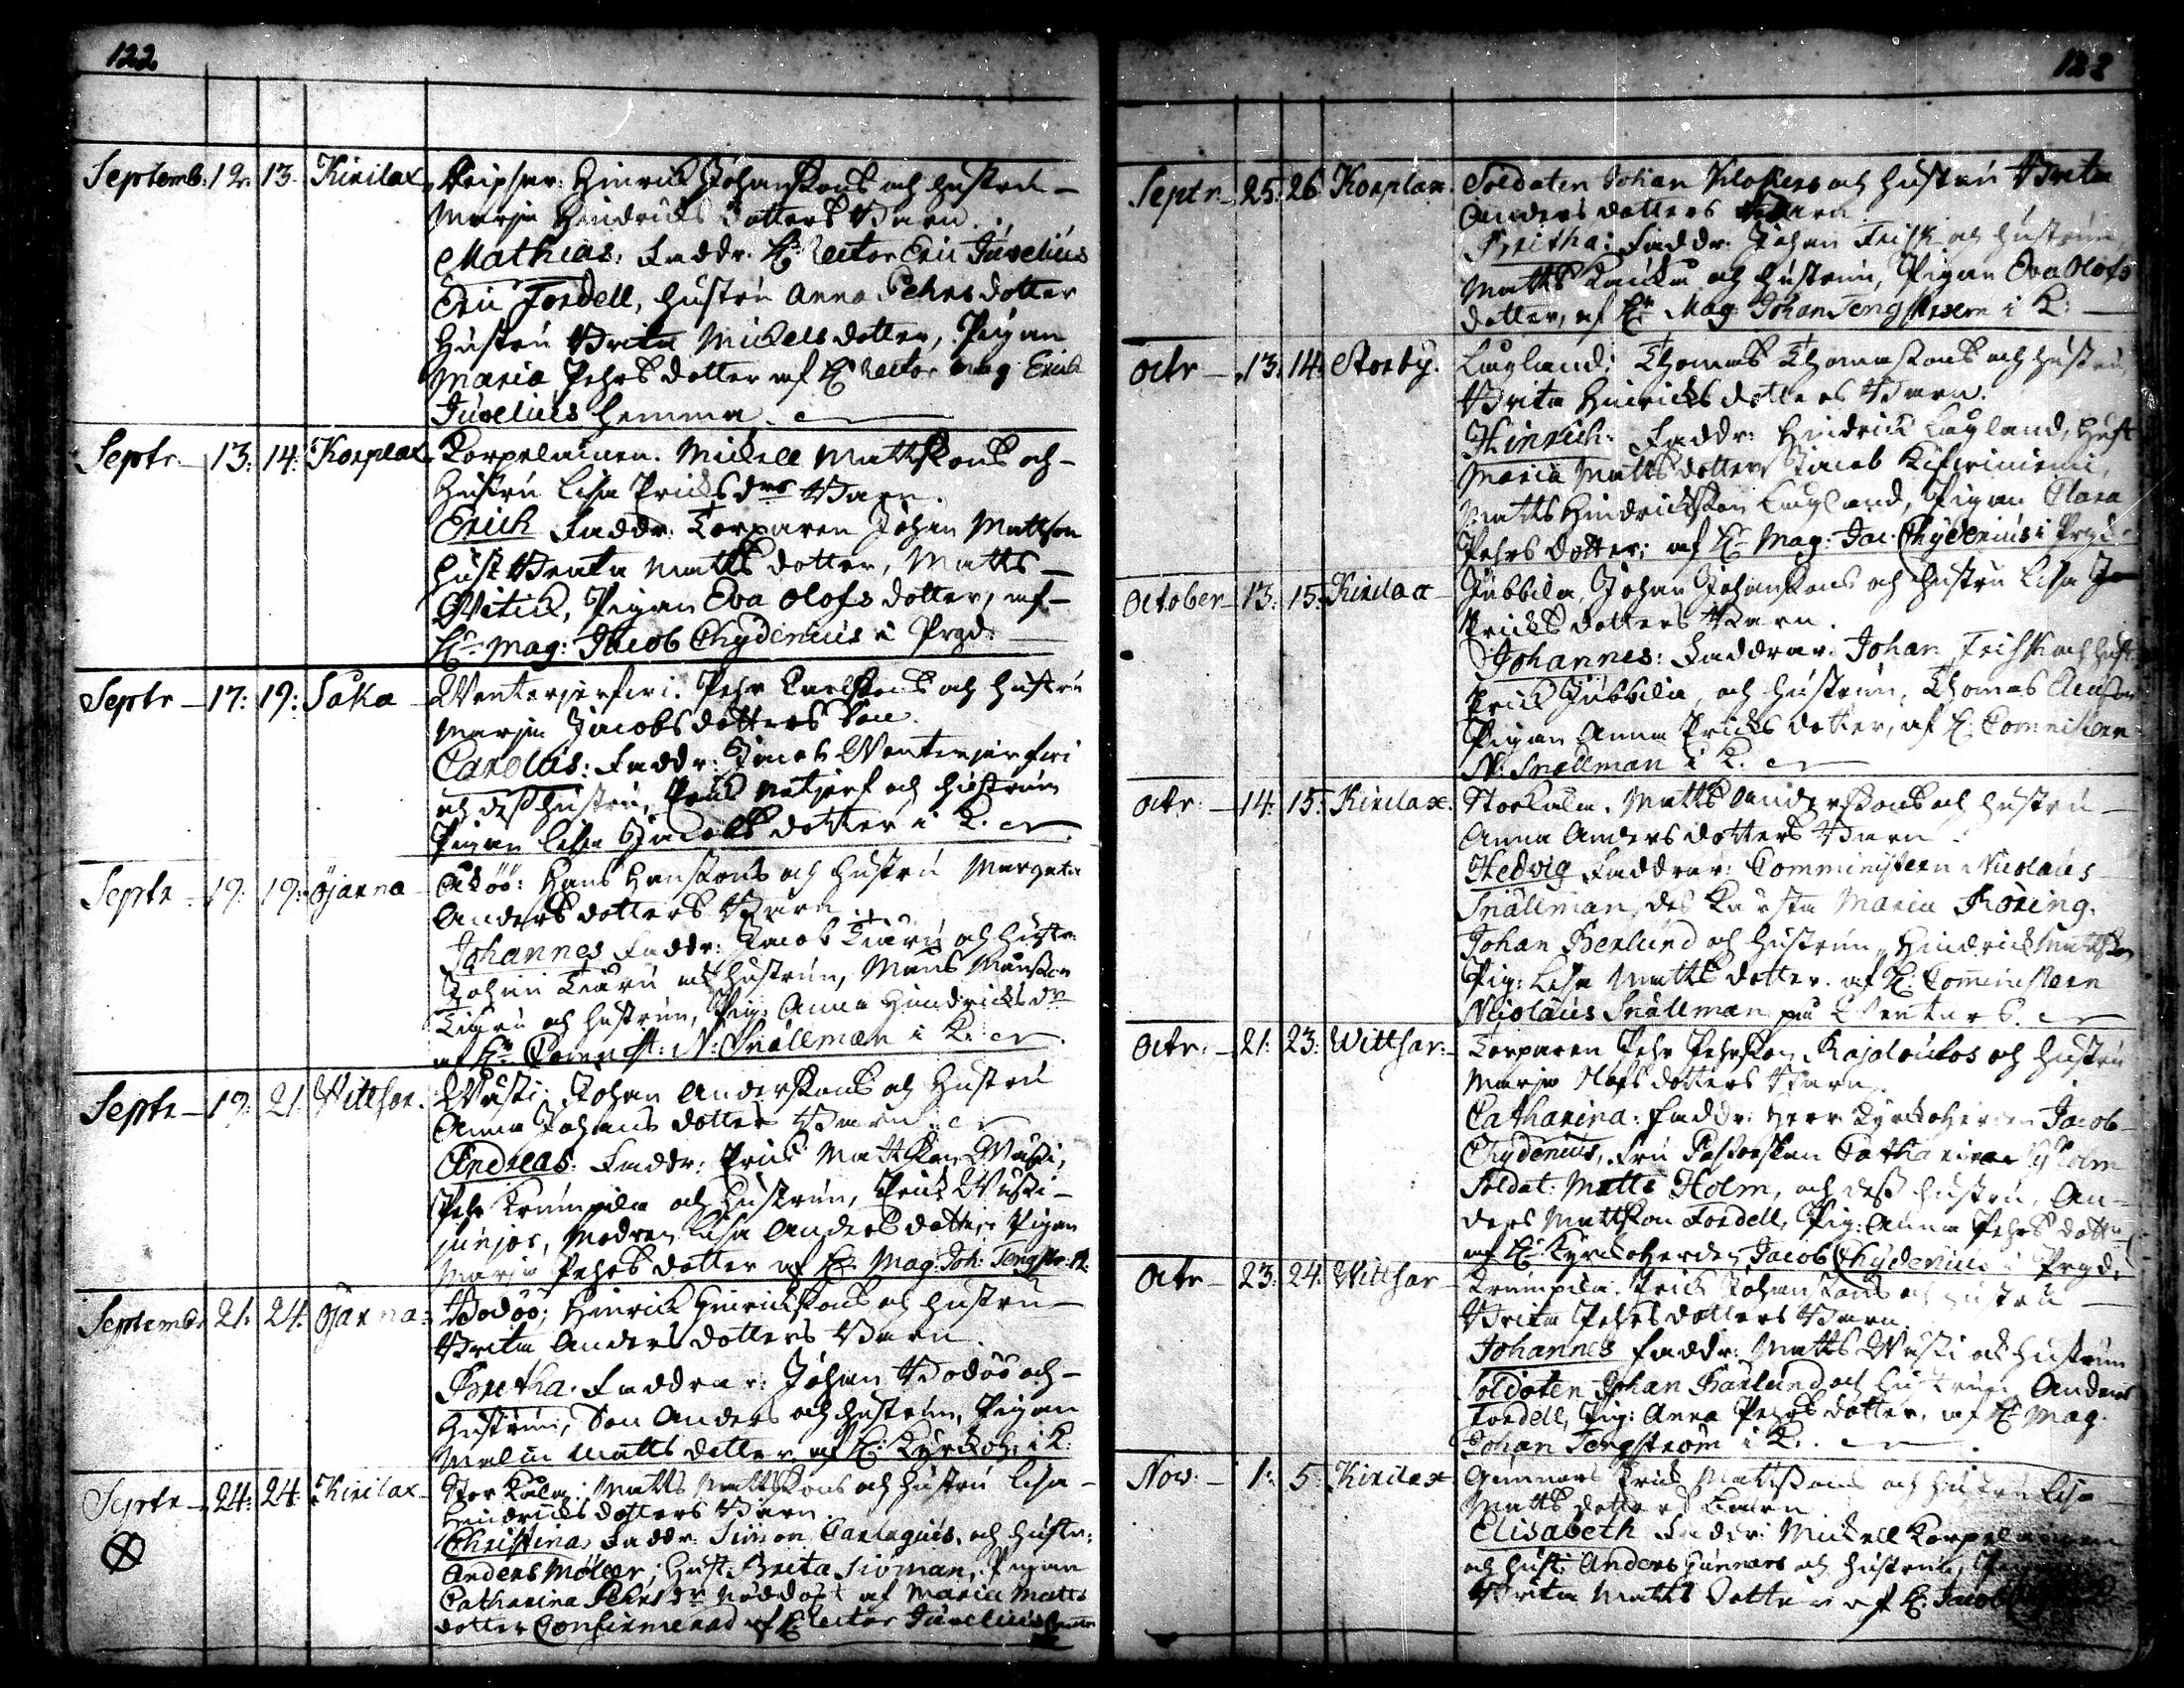 122
Septemb: 12. 13. Kirilax Skepsar: Hinrick Johanssons och hustru
Marja Hindricks dotters Barn.
Mathias: Faddr. H: Rector Eric Juvelius
Eric Fordell, hustru Anna Pehrs dotter
Hustru Brita Mickels dotter, Pigan
Maria Pehrs dotter af H Rector Mag Erick
Juvelius hemma
Septr. 13: 14: Korplax Korpelainen. Mickell Mattssons och
Hustru Lisa Ericks drs Barn.
Erich Faddr. Torparen Johan Mattson
hust Beata Matts dotter, Matts
Witick, Pigan Eva Olofs dotter, af
Hr Mag: Jacob Chydenius i Prgd.
Septr 17: 19: Såka Wenterjerfwi. Pehr Carlssons och hustru
Marja Jacobs dotters Son.
Carolus: Faddr: Jacob Wenterjerfwi
och dess hustru, Erick och hustrun
Pigan Lisa Jacobs dotter i K.
Septr 19: 19: Öjanna Åköö: Hans Hanssons och hustru Margeta
Anders dotters Barn.
Johannes Faddr: Jacob Tiaru och hustr:
Johan Tiaru och hustrun, Måns Månsson
Tiaru och hustrun, Pig: Anna Hindricks dr
af Hr Comminist: N: Snällman i K.
Septr 19: 21 Wittsar. Wåsti: Johan Anderssons och Hustru
Anna Johans dotters Barn.
Andreas: Faddr: Erick Mattsson Wasti,
Pehr Krumpila och hustrun, Erick Wasti
junjor, Modren Lisa Anders dotter Pigan
Marja Pehrs dotter af H. Mag: Joh: Tengstr. K.
Septemb: 21. 24. Öjanna: Bodöö; Hinrick Hinrickssons och hustru
Brita Anders dotters Barn.
Britha. Faddrar: Johan Bodöö och
Hustrun, Son Anders och hustrun, Pigan
Malin Matts dotter af H. Kyrckoh: i K.
Septr 24: 24: Kirilax Storkula; Matts Mattssons och hustru Lisa
Hindricks dotters Barn
Christina, Faddr. Simon Carlaquis, och hustr:
Anders Möller; Hust. Breta Sioman, Pigan
Catharina Pehrs dr Nöddöpt af Maria Matts
dotter Confirmerad af H. Rector Juvelius
123
Septr 25. 26 Korplax. Soldaten Johan Klockers och hustru Brita
Anders dotters Barn.
Britha: Faddr. Johan Frisk och hustrun
Matts och hustrun, Pigan Eva Olofs
dotter, af Hr Mag: Johan Tengström i K:
Octr 13: 14: Storby. Lagland; Thomas Thomassons och hustru
Brita Hinricks dotters Barn.
Hinrich: Faddr: Hindrick Lagland, Hust
Maria Matts dotter, Jacob
Matts Hindricksson Lagland, Pigan Clara
Pehrs dotter; af Hr Mag: Jac: Chydenius i Prgd
October 13: 15: Kirilax Jubbila, Johan Johanssons och hustru Lisa
Ericks dotters Barn.
Johannes: Faddrar. Johan Frisk och hust:
Erick Jubbila, och hustrun, Thomas
Pigan Anna Ericks dotter, af H. Comministern
N: Snällman i K.
Octr: 14: 15: Kirilax. Storkula. Matts Anderssons och hustru
Anna Anders dotters Barn
Hedvig Faddrar: Comministern Nicolaus
Snällman, des Kärsta Maria Röring.
Johan Berlund och hustrun, Hindrick Mattsson
Pig: Lisa Matts dotter. af H. Comministern
Nicolaus Snällman på
Octr. 21: 23: Wittsar: Torparen Pehr Pehrsson Kajoloukos och hustru
Marja Olofs dotters Barn.
Catharina: Faddr: Herr Kyrckoherden Jacob
Chydenius, Fru Pastorskan Catharina
Soldat: Matts Holm, och dess hustru, An-
ders Mattsson Fordell, Pig: Anna Pehrs dotter
af H. Kyrckoherden Jacob Chydenius i Prgd.
Octr 23: 24: Wittsar Krumpila. Erick Johanssons och hustru
Brita Pehrs dotters Barn.
Johannes Faddr: Matts Wasti och hustrun
Soldaten Johan Barlund och hustrun, Anders
Fordell, Pig: Anna Pehrs dotter, af H. Mag.
Johan Tengström i K.
Nov: 1: 5 Kirilax Gunnars Erick Mattssons och hustru Lisa
Matts dotters Barn
Elisabeth Faddr: Mickell Korpelainen
och hust: Anders Gunnars och hustrun,
Brita Matts dotter af H. Jacob